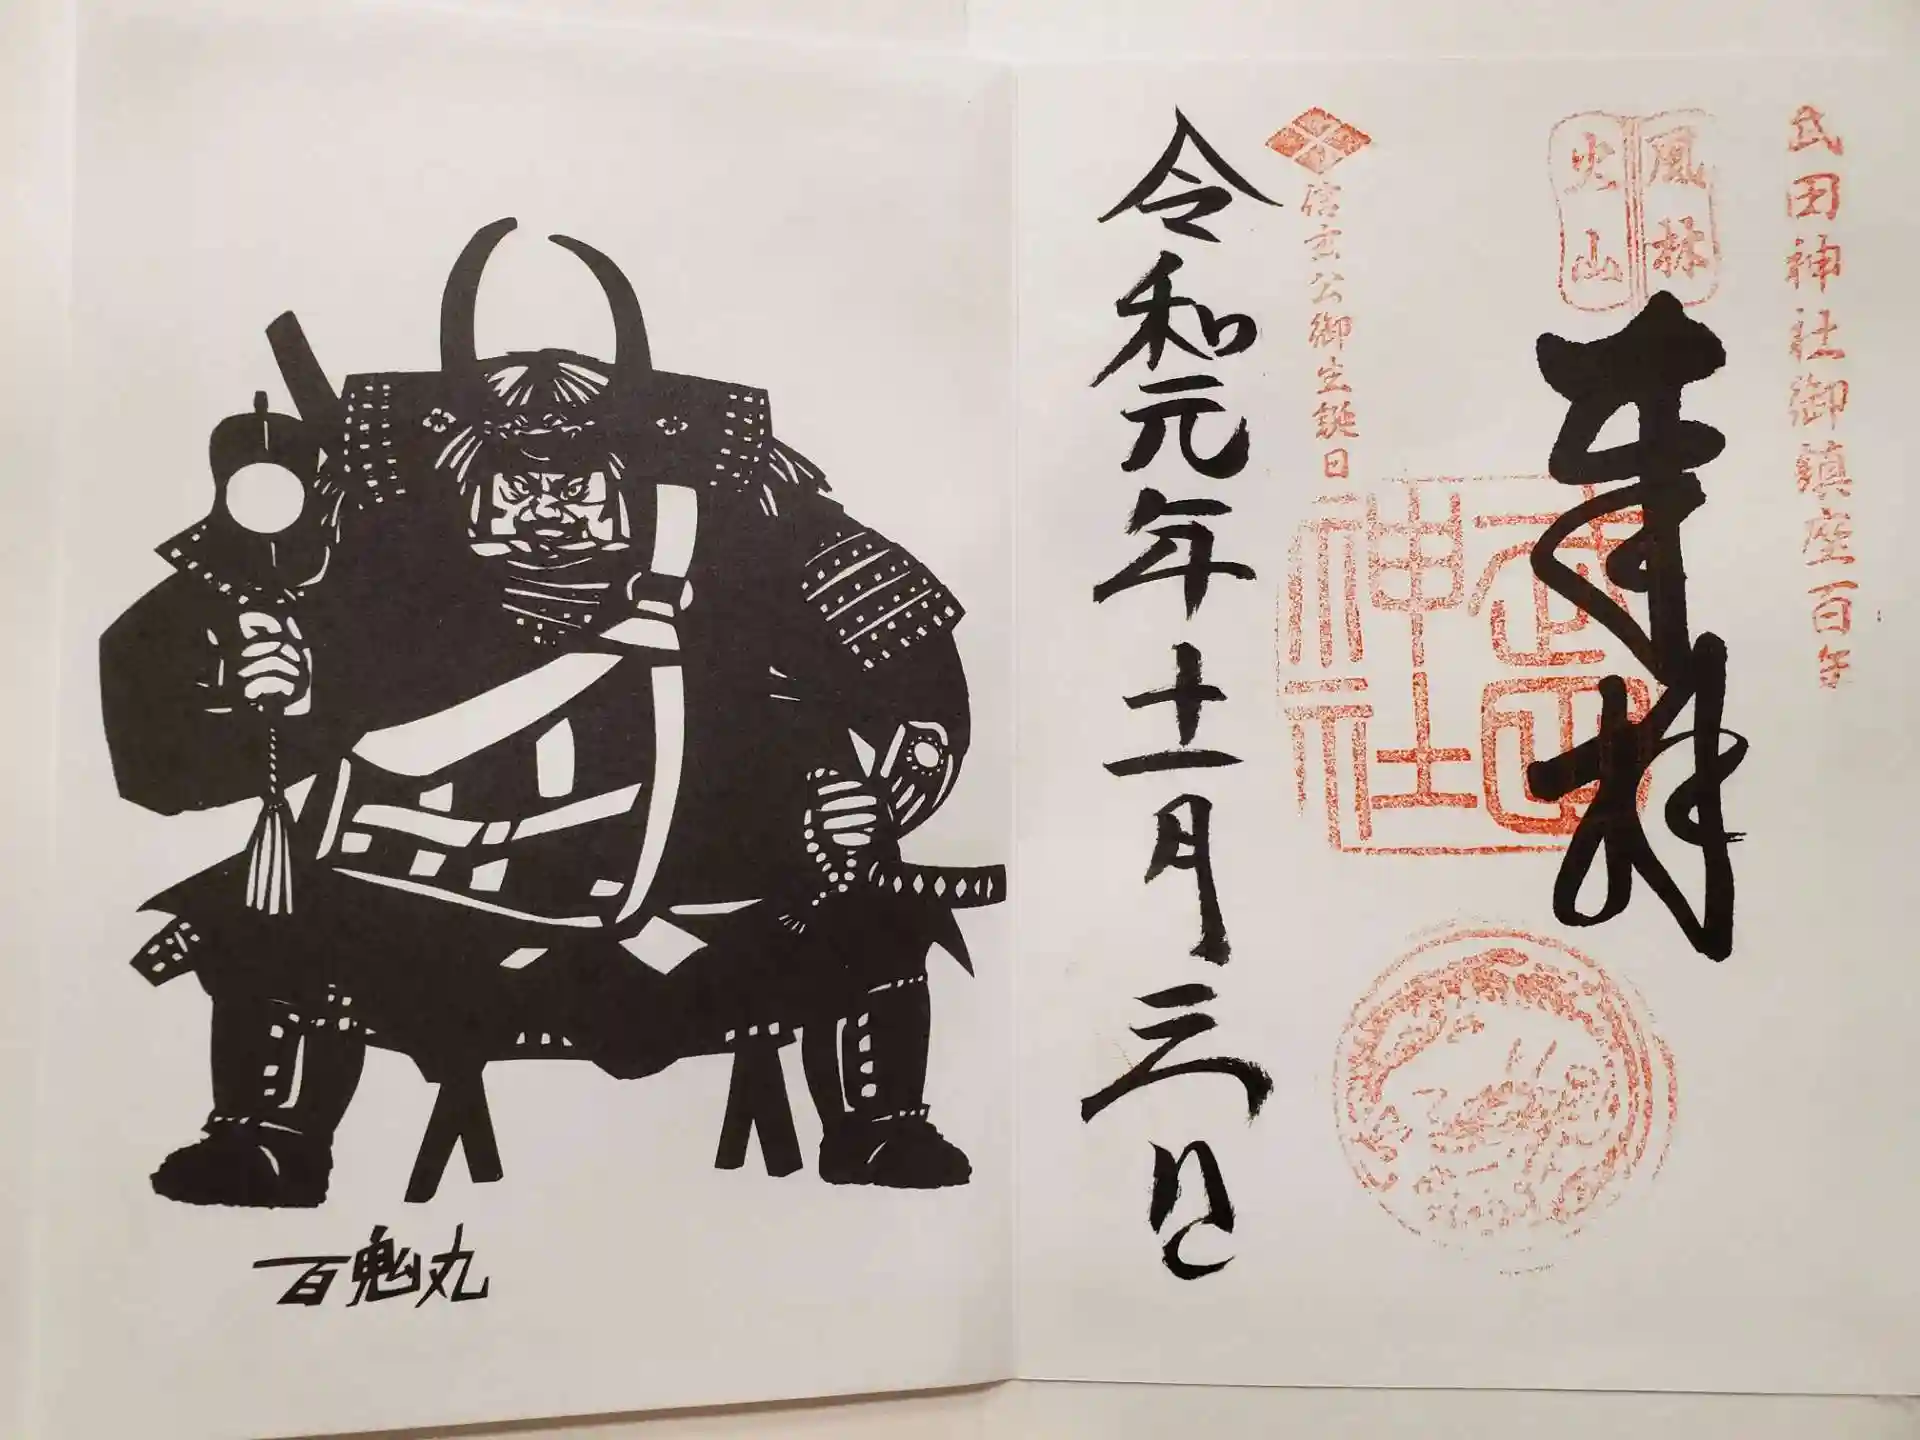 武田神社御鎮座百年
風林
火山
奉拝
武田
神社
信玄公御生誕日
令和元年十一月三日
百鬼丸